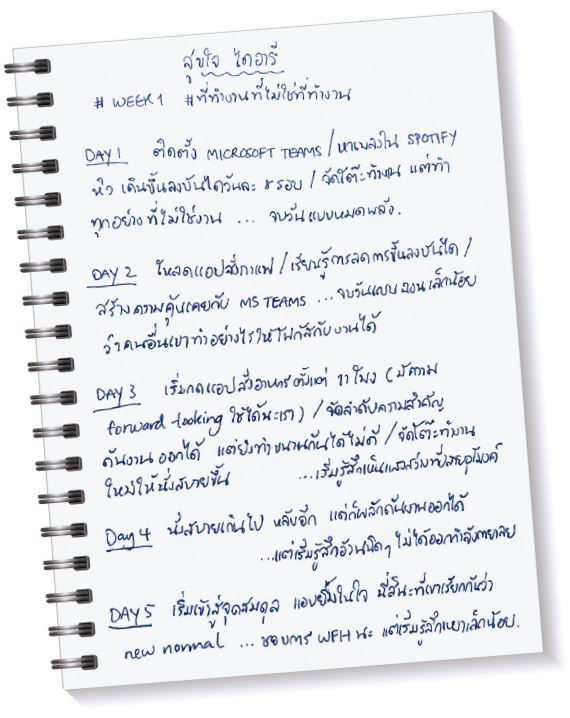 สุขใจ ไดอารี่
# WEEK 1 #ที่ทำงานที่ไม่ใช่ที่ทำงาน
DAY 1 ติดตั้ง MICROSOFT TEAMS / หาเพลงใน SPOTIFY
หิว เดินขึ้นลงบันไดวันละ 8 รอบ / จัดโต๊ะทำงาน แต่ทำ
ทุกอย่าง ที่ไม่ใช่งาน ... จบวันแบบหมดพลัง.
DAY 2 โหลดแอปสั่งกาแฟ / เรียนรู้การลดการขึ้นลงบันได /
สร้างความคุ้นเคยกับ MS TEAMS ... จบวันแบบ งงนเล็กน้อย
ว่าคนอื่นเขาทำอย่างไรให้โฟกัสกับงานได้
DAY 3 เริ่มกดแอปสั่งอาหารตั้งแต่ 11 โมง (มีความ
forward-looking ใช้ได้นะเรา) / จัดลำดับความสำคัญ
ดันงานออกได้ แต่ยังทำขนานกันได้ไม่ดี / จัดโต๊ะทำงาน
ใหม่ให้นั่งสบายขึ้น ...เริ่มรู้สึกเห็นแสงสว่างที่ปลายอุโมงค์
Day 4 นั่งสบายเกินไป หลับอีก แต่ก็ผลักดันงานออกได้
...แต่เริ่มรู้สึกอ้วนนิดๆ ไม่ได้ออกกำลังกายเลย
DAY 5 เริ่มเข้าสู่จุดสมดุล แอบยิ้มในใจ นี่สินะที่เขาเรียกกันว่า
new normal ... ชอบการ WFH นะ แต่เริ่มรู้สึกเหงาเล็กน้อย.